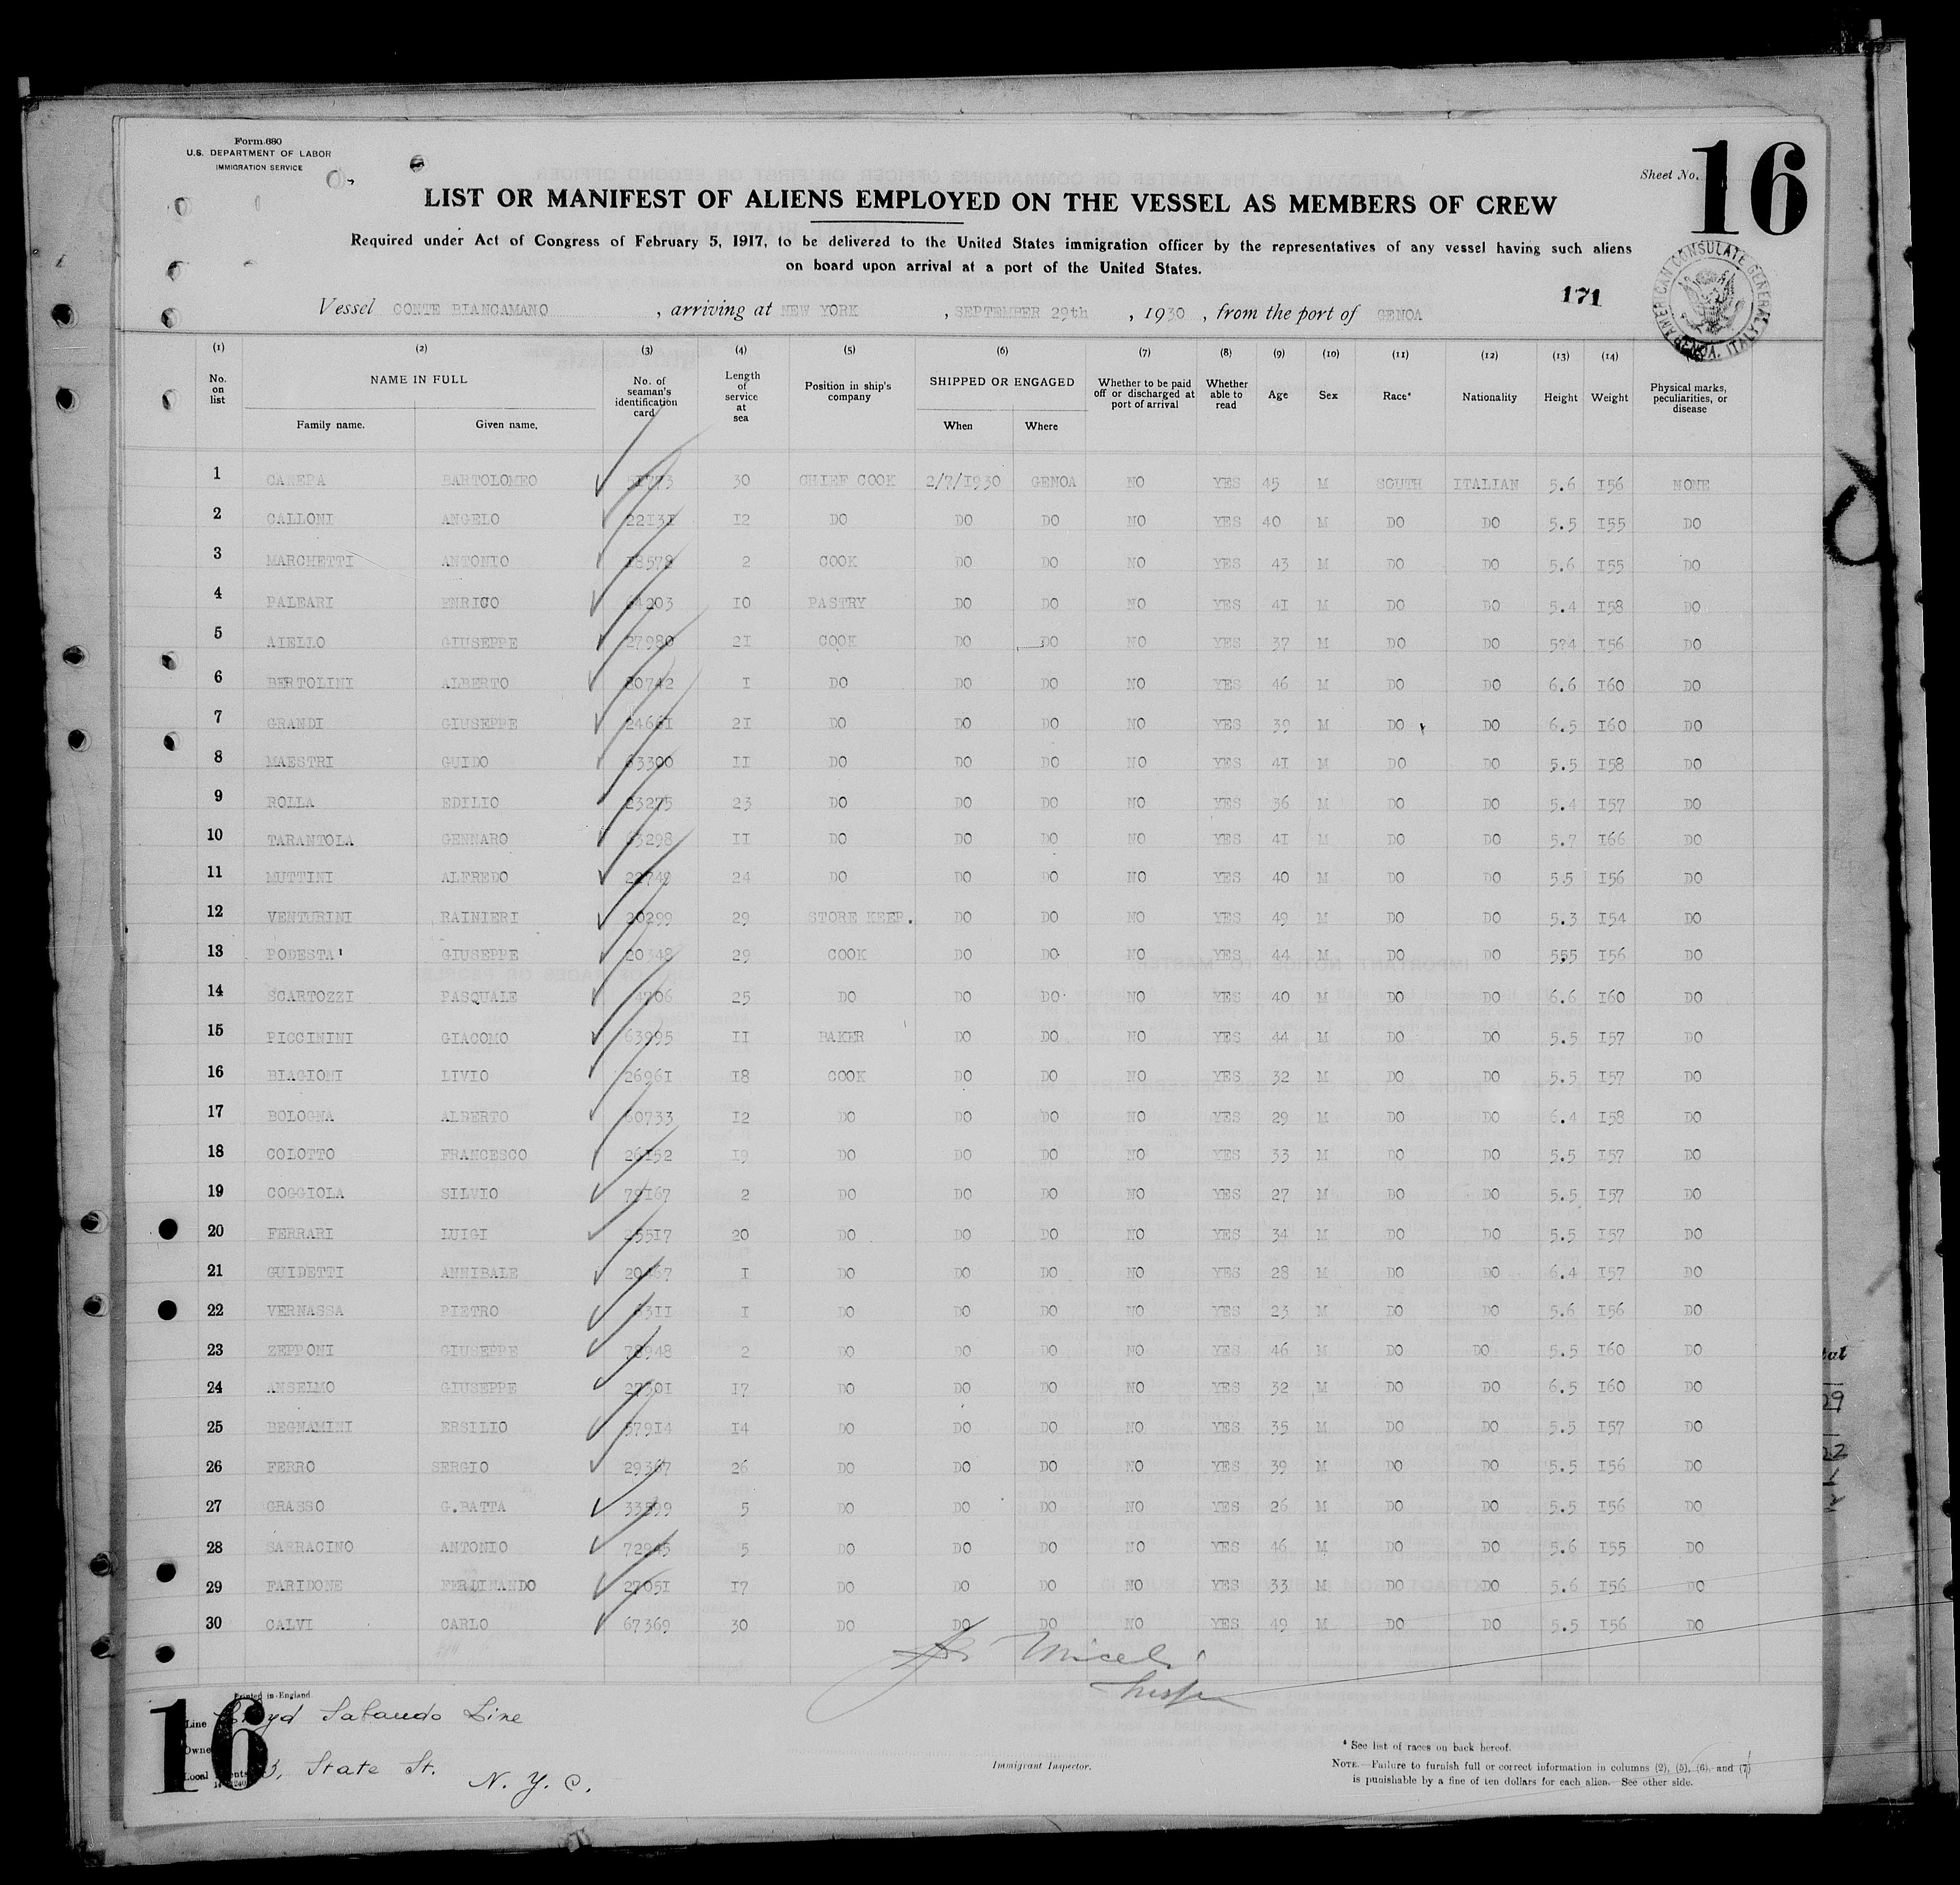 Form 680
U.S. DEPARTMENT OF LABOR
IMMIGRATION SERVICE
Sheet No. 16
LIST OR MANIFEST OF ALIENS EMPLOYED ON THE VESSEL AS MEMBERS OF CREW
Required under Act of Congress of February 5, 1917, to be delivered to the United States immigration officer by the representatives of any vessel having such aliens
on board upon arrival at a port of the United States.
AMERICAN CONSULATE GENERAL GENOA, ITALY
171
Vessel CONTE BIANCAMANO, arriving at NEW YORK, SEPTEMBER 29th, 1930, from the port of GENOA
(1) (2) (3) (4) (5) (6) (7) (8) (9) (10) (11) (12) (13) (14)
No. on list NAME IN FULL Family name. Given name. No. of seaman's identification card Length of service at sea Position in ship's company SHIPPED OR ENGAGED When Where Whether to be paid off or discharged at port of arrival Whether able to read Age Sex Race* Nationality Height Weight Physical marks, peculiarities, or disease
1 CANEPA BARTOLOMEO 30 CHIEF COOK 2/7/1930 GENOA NO YES 45 M SOUTH ITALIAN 5.6 156 NONE
2 CALLONI ANGELO 22131 12 DO DO DO NO YES 40 M DO DO 5.5 155 DO
3 MARCHETTI ANTONIO 18578 2 COOK DO DO NO YES 43 M DO DO 5.6 155 DO
4 PALEARI ENRICO 10 PASTRY DO DO NO YES 41 M DO DO 5.4 158 DO
5 AIELLO GIUSEPPE 27980 21 COOK DO DO NO YES 37 M DO DO 5?4 156 DO
6 BERTOLINI ALBERTO 1 DO DO DO NO YES 46 M DO DO 6.6 160 DO
7 GRANDI GIUSEPPE 24661 21 DO DO DO NO YES 39 M DO DO 6.5 160 DO
8 MAESTRI GUIDO 63300 11 DO DO DO NO YES 41 M DO DO 5.5 158 DO
9 ROLLA EDILIO 23275 23 DO DO DO NO YES 36 M DO DO 5.4 157 DO
10 TARANTOLA GENNARO 63298 11 DO DO DO NO YES 41 M DO DO 5.7 166 DO
11 MUTTINI ALFREDO 22749 24 DO DO DO NO YES 40 M DO DO 5.5 156 DO
12 VENTURINI RAINIERI 20299 29 STORE KEEP. DO DO NO YES 49 M DO DO 5.3 154 DO
13 PODESTA' GIUSEPPE 20348 29 COOK DO DO NO YES 44 M DO DO 555 156 DO
14 SCARTOZZI PASQUALE 25 DO DO DO NO YES 40 M DO DO 6.6 160 DO
15 PICCININI GIACOMO 63995 11 BAKER DO DO NO YES 44 M DO DO 5.5 157 DO
16 BIAGIONI LIVIO 26961 18 COOK DO DO NO YES 32 M DO DO 5.5 157 DO
17 BOLOGNA ALBERTO 12 DO DO DO NO YES 29 M DO DO 6.4 158 DO
18 COLOTTO FRANCESCO 26152 19 DO DO DO NO YES 33 M DO DO 5.5 157 DO
19 COGGIOLA SILVIO 2 DO DO DO NO YES 27 M DO DO 5.5 157 DO
20 FERRARI LUIGI 20 DO DO DO NO YES 34 M DO DO 5.5 157 DO
21 GUIDETTI ANNIBALE 1 DO DO DO NO YES 28 M DO DO 6.4 157 DO
22 VERNASSA PIETRO 1 DO DO DO NO YES 23 M DO DO 5.6 156 DO
23 ZEPPONI GIUSEPPE 2 DO DO DO NO YES 46 M DO DO 5.5 160 DO
24 ANSELMO GIUSEPPE 17 DO DO DO NO YES 32 M DO DO 6.5 160 DO
25 BEGNAMINI ERSILIO 57914 14 DO DO DO NO YES 35 M DO DO 5.5 157 DO
26 FERRO SERGIO 29367 26 DO DO DO NO YES 39 M DO DO 5.5 156 DO
27 GRASSO G.BATTA 5 DO DO DO NO YES 26 M DO DO 5.5 156 DO
28 SARRACINO ANTONIO 72945 5 DO DO DO NO YES 46 M DO DO 5.6 155 DO
29 FARIDONE FERDINANDO 27051 17 DO DO DO NO YES 33 M DO DO 5.6 156 DO
30 CALVI CARLO 67369 30 DO DO DO NO YES 49 M DO DO 5.5 156 DO
Miceli
Printed in England
16
Line Lloyd Sabaudo Line
Owners
Local Agents 3, State St. N. Y. C.
Immigrant Inspector.
* See list of races on back hereof.
NOTE.—Failure to furnish full or correct information in columns (2), (5), (6), and (7)
is punishable by a fine of ten dollars for each alien. See other side.